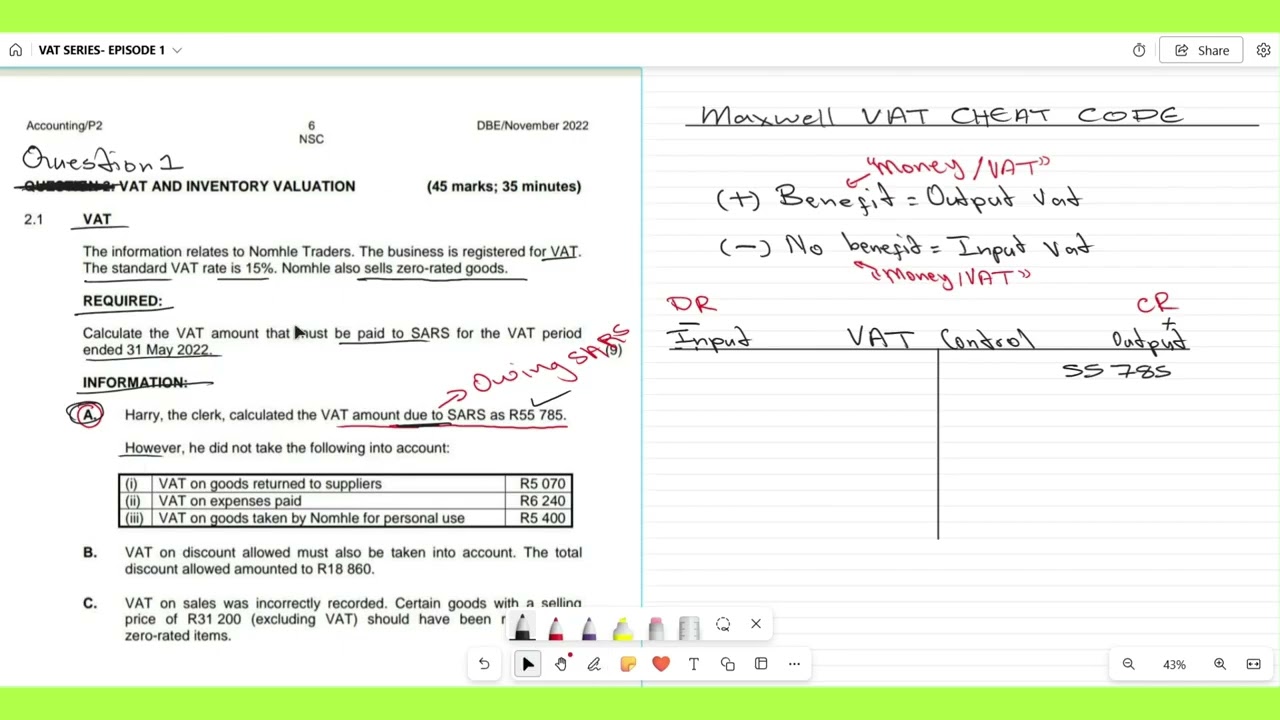 VAT SERIES- EPISODE 1
Share
Accounting/P2 6 DBE/November 2022
NSC
Question 1
VAT AND INVENTORY VALUATION (45 marks; 35 minutes)
2.1 VAT
The information relates to Nomhle Traders. The business is registered for VAT.
The standard VAT rate is 15%. Nomhle also sells zero-rated goods.
REQUIRED:
Calculate the VAT amount that must be paid to SARS for the VAT period
ended 31 May 2022. (9)
INFORMATION:
Owing SARS
A. Harry, the clerk, calculated the VAT amount due to SARS as R55 785.
However, he did not take the following into account:
(i) VAT on goods returned to suppliers R5 070
(ii) VAT on expenses paid R6 240
(iii) VAT on goods taken by Nomhle for personal use R5 400
B. VAT on discount allowed must also be taken into account. The total
discount allowed amounted to R18 860.
C. VAT on sales was incorrectly recorded. Certain goods with a selling
price of R31 200 (excluding VAT) should have been
zero-rated items.
Maxwell VAT CHEAT CODE
"Money/VAT"
(+) Benefit = Output Vat
(-) No benefit = Input Vat
"Money/VAT"
DR CR
- +
Input VAT Control Output
55 785
43%